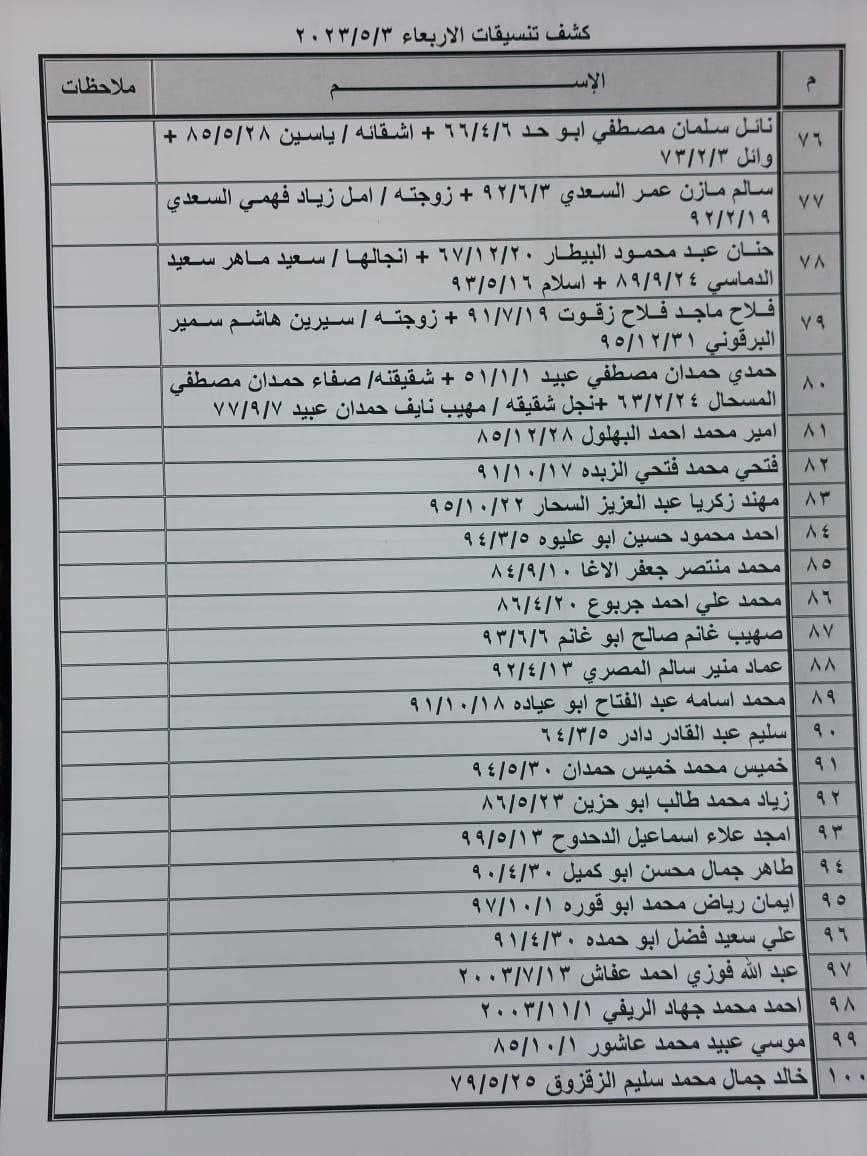 كشف تنسيقات الاربعاء ٢٠٢٣/٥/٣
م الإســــــــم ملاحظات
٧٦ نائل سلمان مصطفي ابو حد ٦٦/٤/٦ + اشقائه / ياسين ٨٥/٥/٢٨ +
وائل ٧٣/٢/٣
٧٧ سالم مازن عمر السعدي ٩٢/٦/٣ + زوجته / امل زياد فهمي السعدي
٩٢/٢/١٩
٧٨ حنان عبد محمود البيطار ٦٧/١٢/٢٠ + انجالها / سعيد ماهر سعيد
الدماسي ٨٩/٩/٢٤ + اسلام ٩٣/٥/١٦
٧٩ فلاح ماجد فلاح زقوت ٩١/٧/١٩ + زوجته / سيرين هاشم سمير
البرقوني ٩٥/١٢/٣١
٨٠ حمدي حمدان مصطفي عبيد ٥١/١/١ + شقيقته/ صفاء حمدان مصطفي
المسحال ٦٣/٢/٢٤ +نجل شقيقه / مهيب نايف حمدان عبيد ٧٧/٩/٧
٨١ امير محمد احمد البهلول ٨٥/١٢/٢٨
٨٢ فتحي محمد فتحي الزبده ٩١/١٠/١٧
٨٣ مهند زكريا عبد العزيز السحار ٩٥/١٠/٢٢
٨٤ احمد محمود حسين ابو عليوه ٩٤/٣/٥
٨٥ محمد منتصر جعفر الاغا ٨٤/٩/١٠
٨٦ محمد علي احمد جربوع ٨٦/٤/٢٠
٨٧ صهيب غانم صالح ابو غانم ٩٣/٦/٦
٨٨ عماد منير سالم المصري ٩٢/٤/١٣
٨٩ محمد اسامه عبد الفتاح ابو عياده ٩١/١٠/١٨
٩٠ سليم عبد القادر دادر ٦٤/٣/٥
٩١ خميس محمد خميس حمدان ٩٤/٥/٣٠
٩٢ زياد محمد طالب ابو حزين ٨٦/٥/٢٣
٩٣ امجد علاء اسماعيل الدحدوح ٩٩/٥/١٣
٩٤ طاهر جمال محسن ابو كميل ٩٠/٤/٣٠
٩٥ ايمان رياض محمد ابو قوره ٩٧/١٠/١
٩٦ علي سعيد فضل ابو حمده ٩١/٤/٣٠
٩٧ عبد الله فوزي احمد عفاش ٢٠٠٣/٧/١٣
٩٨ احمد محمد جهاد الريفي ٢٠٠٣/١١/١
٩٩ موسي عبيد محمد عاشور ٨٥/١٠/١
١٠٠ خالد جمال محمد سليم الزقزوق ٧٩/٥/٢٥